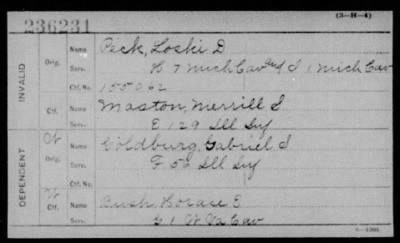 236231
(3—H—4)
INVALID
Orig.
Name Peck, Loski D
Serv. B 7 Mich Cav and I 1 Mich Cav
Ctf. No. 155062
Ctf.
Name Maston, Merrill S
Serv. E 129 Ill Inf
DEPENDENT
Orig.
Name Goldburg, Gabriel S
Serv. F 56 Ill Inf
Ctf. No.
Ctf.
Name Rush, Horace E
Serv. G 1 W Va Cav